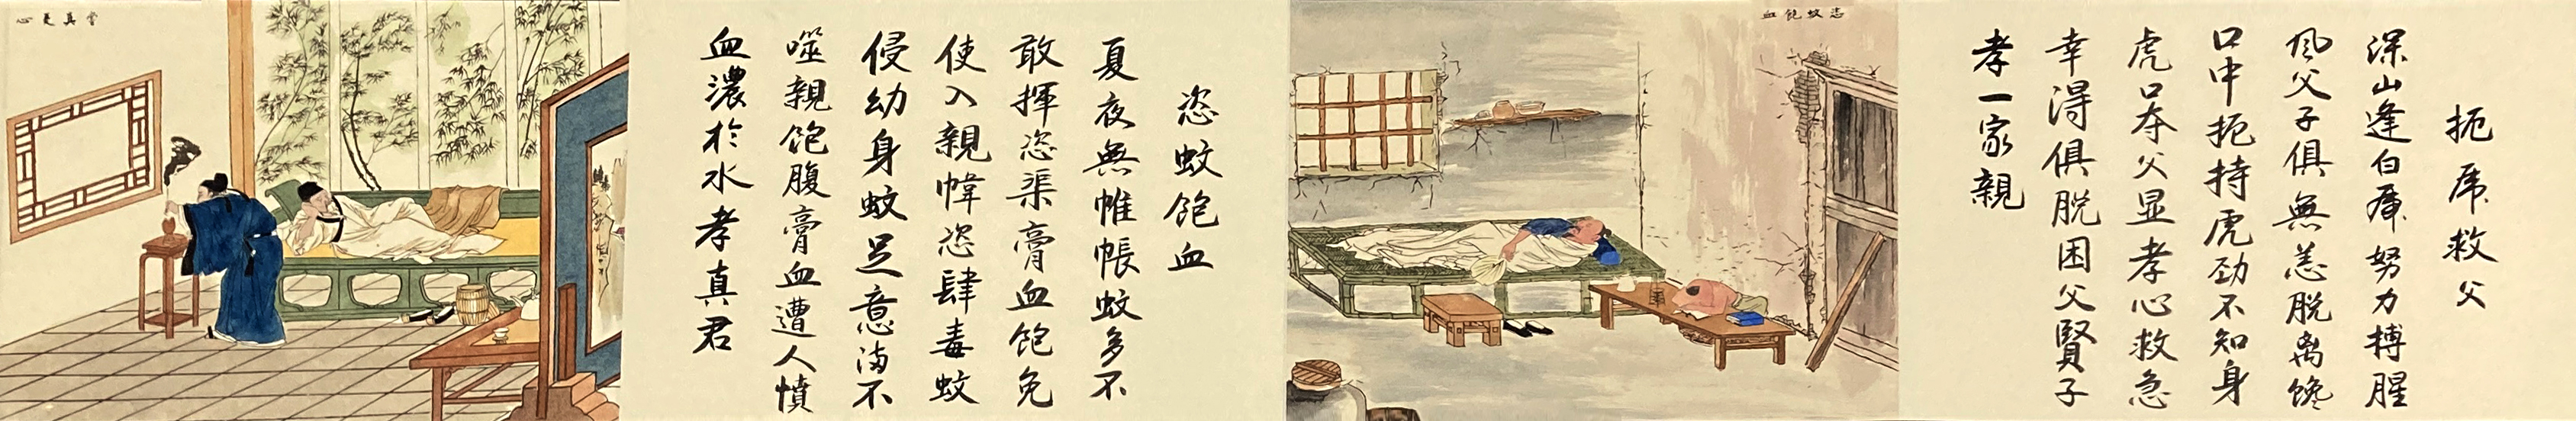 扼虎救父
深山逢白虎努力搏腥
风父子俱無恙脱离馋
口中扼持虎劲不知身
虎口夺父显孝心救急
幸得俱脱困父賢子
孝一家親
恣蚊飽血
恣蚊飽血
夏夜無帷帳蚊多不
敢揮恣渠膏血飽免
使入親幃恣肆毒蚊
侵幼身蚊足意满不
噬親飽腹膏血遭人憤
血濃於水孝真君